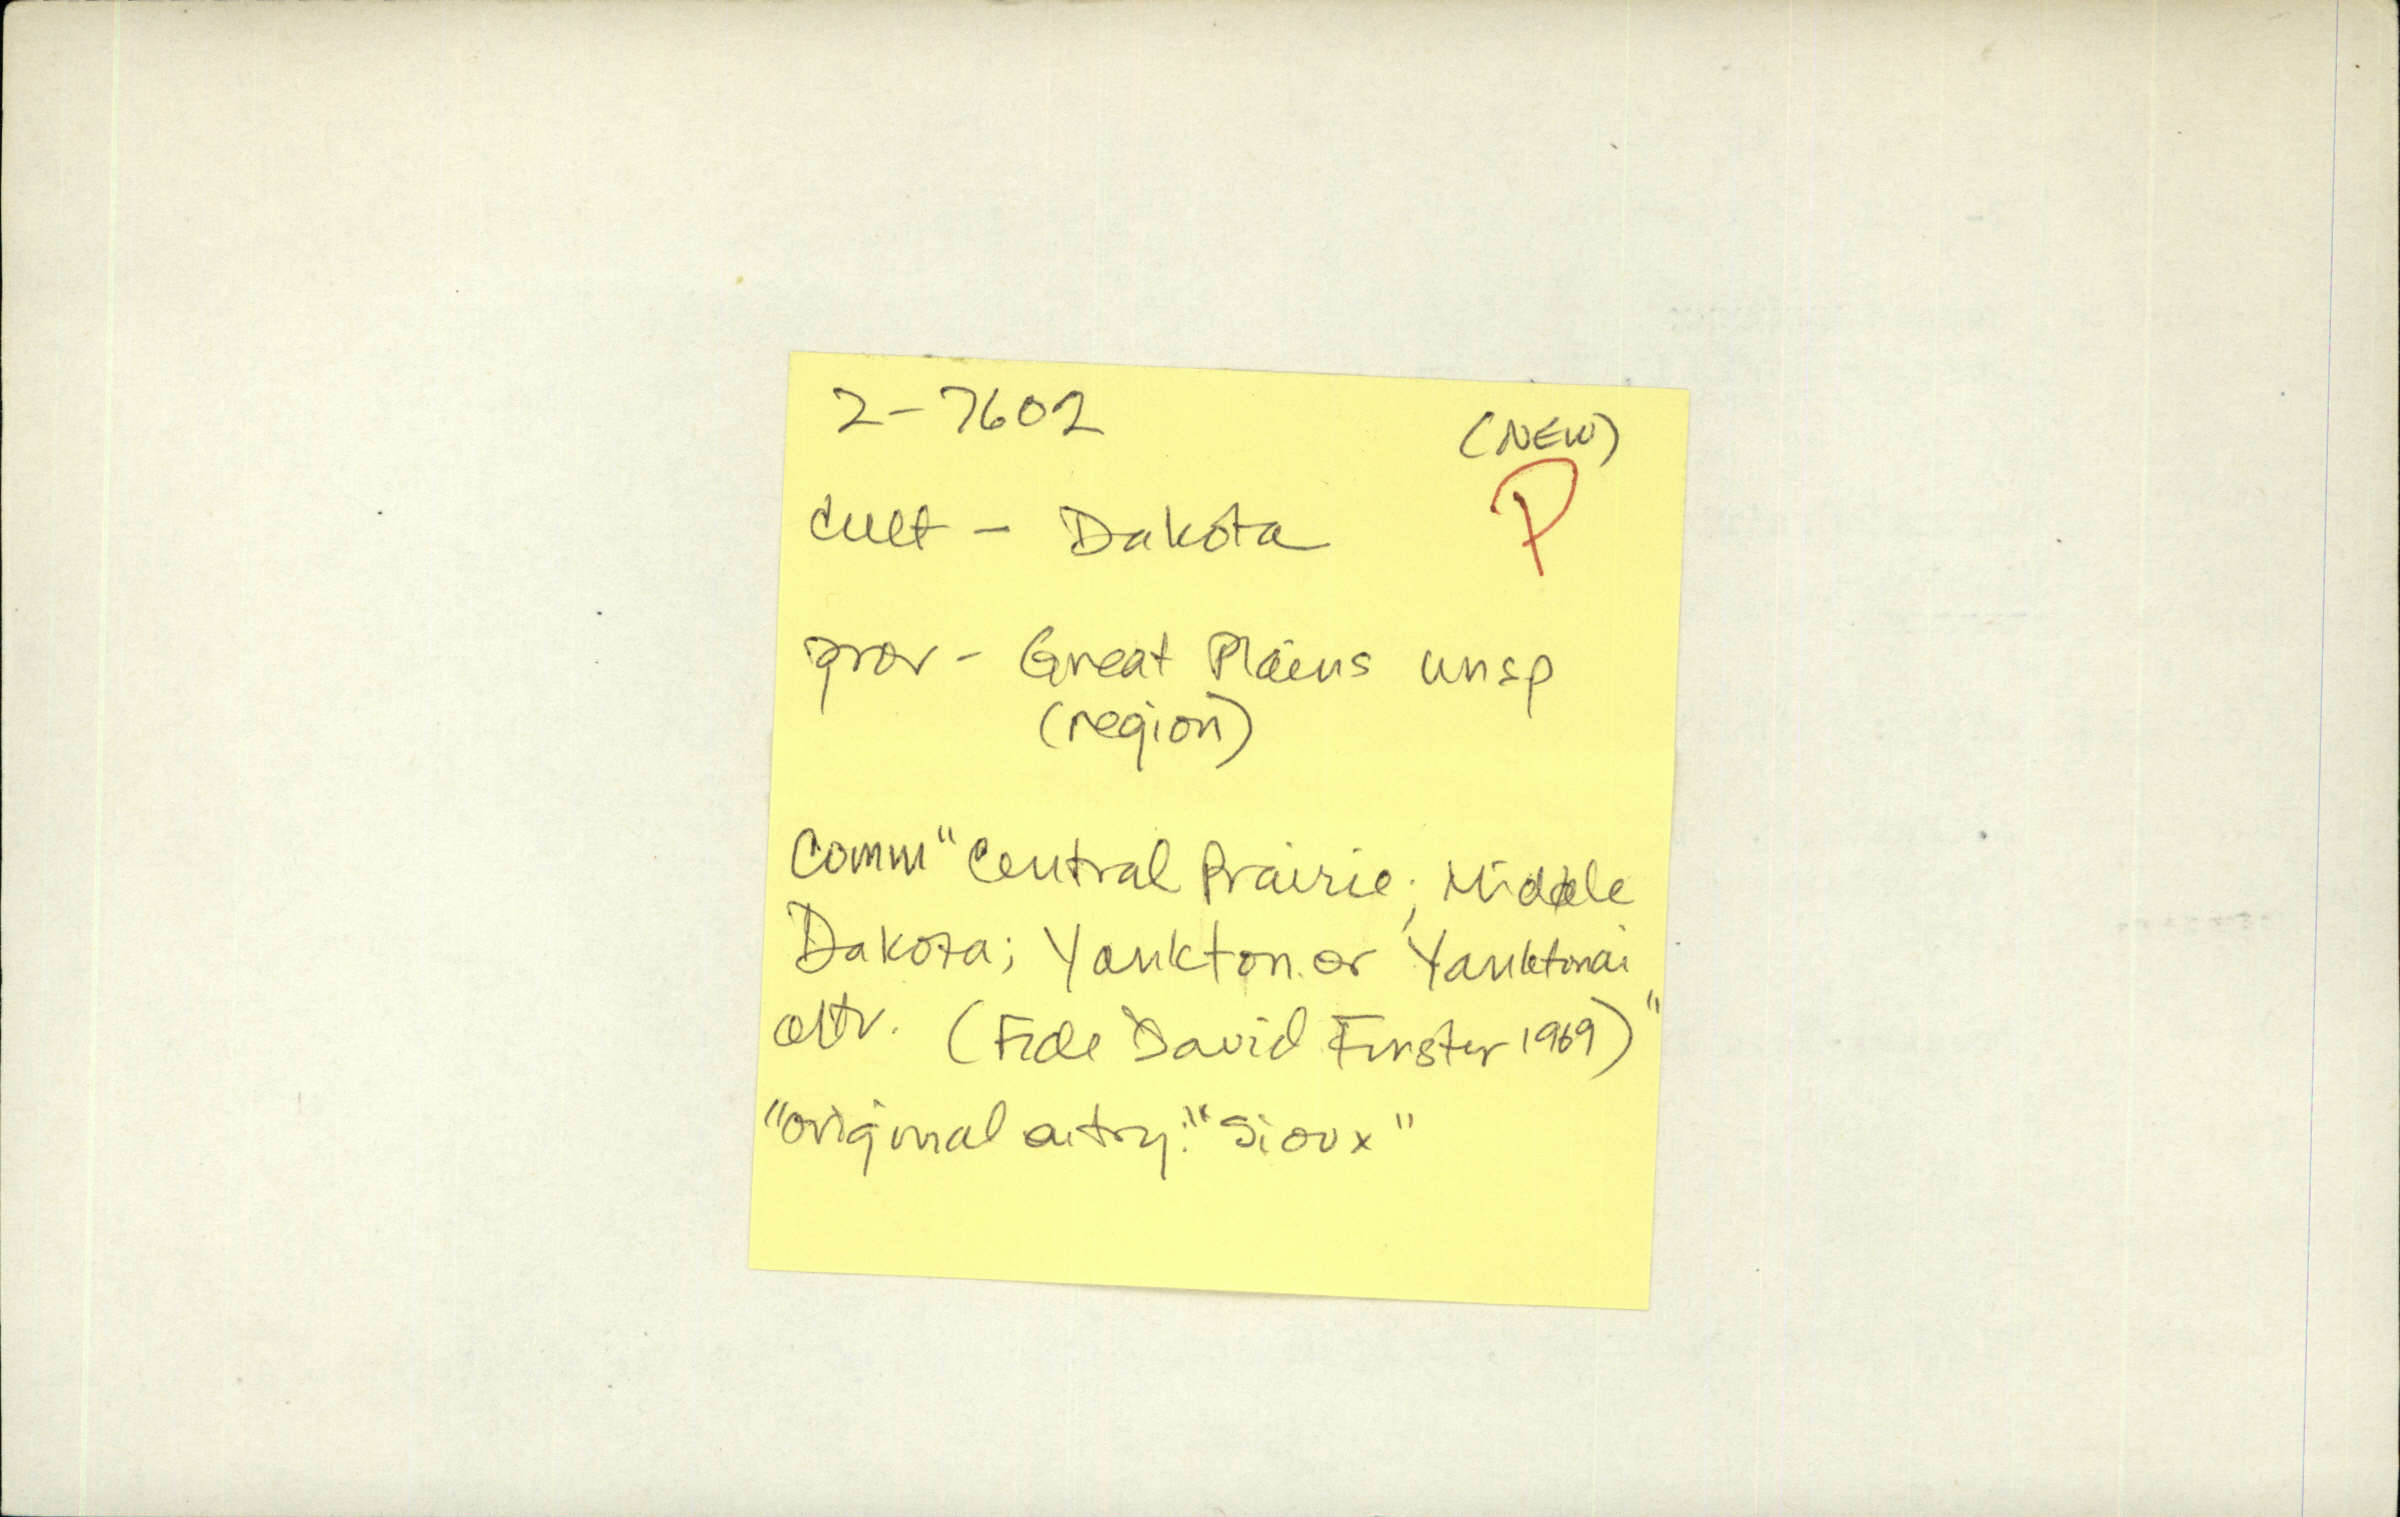 2-7602
(NEW)
P
cult - Dakota
prov - Great Plains unsp
(region)
Comm "Central Prairie; Middle
Dakota; Yankton or Yanktonai
attr. (Fide David Finster 1969)"
"original entry:" "Sioux"